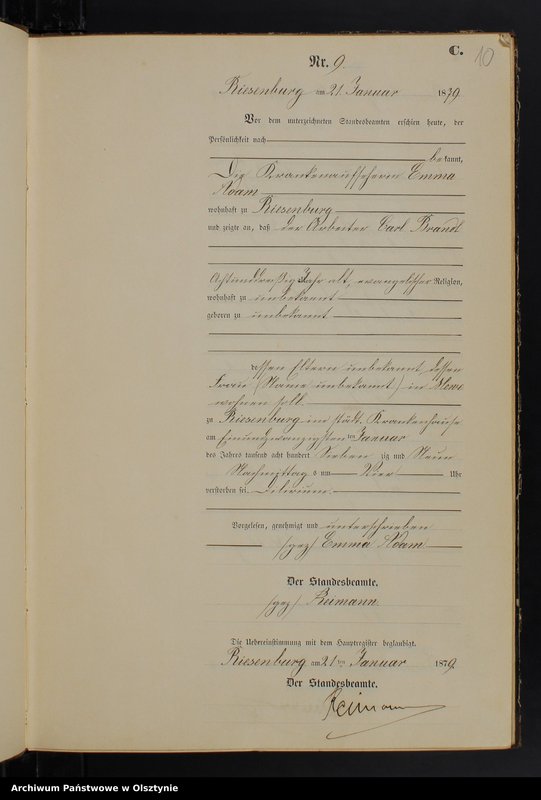 C.
10
Nr. 9.
Riesenburg am 21. Januar 1879.
Vor dem unterzeichneten Standesbeamten erschien heute, der
Persönlichkeit nach
bekannt,
Die Krankenaufseherin Emma
Adam
wohnhaft zu Riesenburg
und zeigte an, daß der Arbeiter Carl Brandt
Achtunddreißig Jahr alt, evangelischer Religion,
wohnhaft zu unbekannt
geboren zu unbekannt
dessen Eltern unbekannt, dessen
Frau (Name unbekannt) in Mewe
wohnen soll.
zu Riesenburg im städt. Krankenhause
am Einundzwanzigsten ten Januar
des Jahres tausend acht hundert Sieben zig und Neun
Nachmittag s um Vier Uhr
verstorben sei. Delirium.
Vorgelesen, genehmigt und unterschrieben
(gez) Emma Adam
Der Standesbeamte.
(gez) Reimann.
Die Uebereinstimmung mit dem Hauptregister beglaubigt.
Riesenburg am 21 ten Januar 1879.
Der Standesbeamte.
Reimann
Archiwum Państwowe w Olsztynie